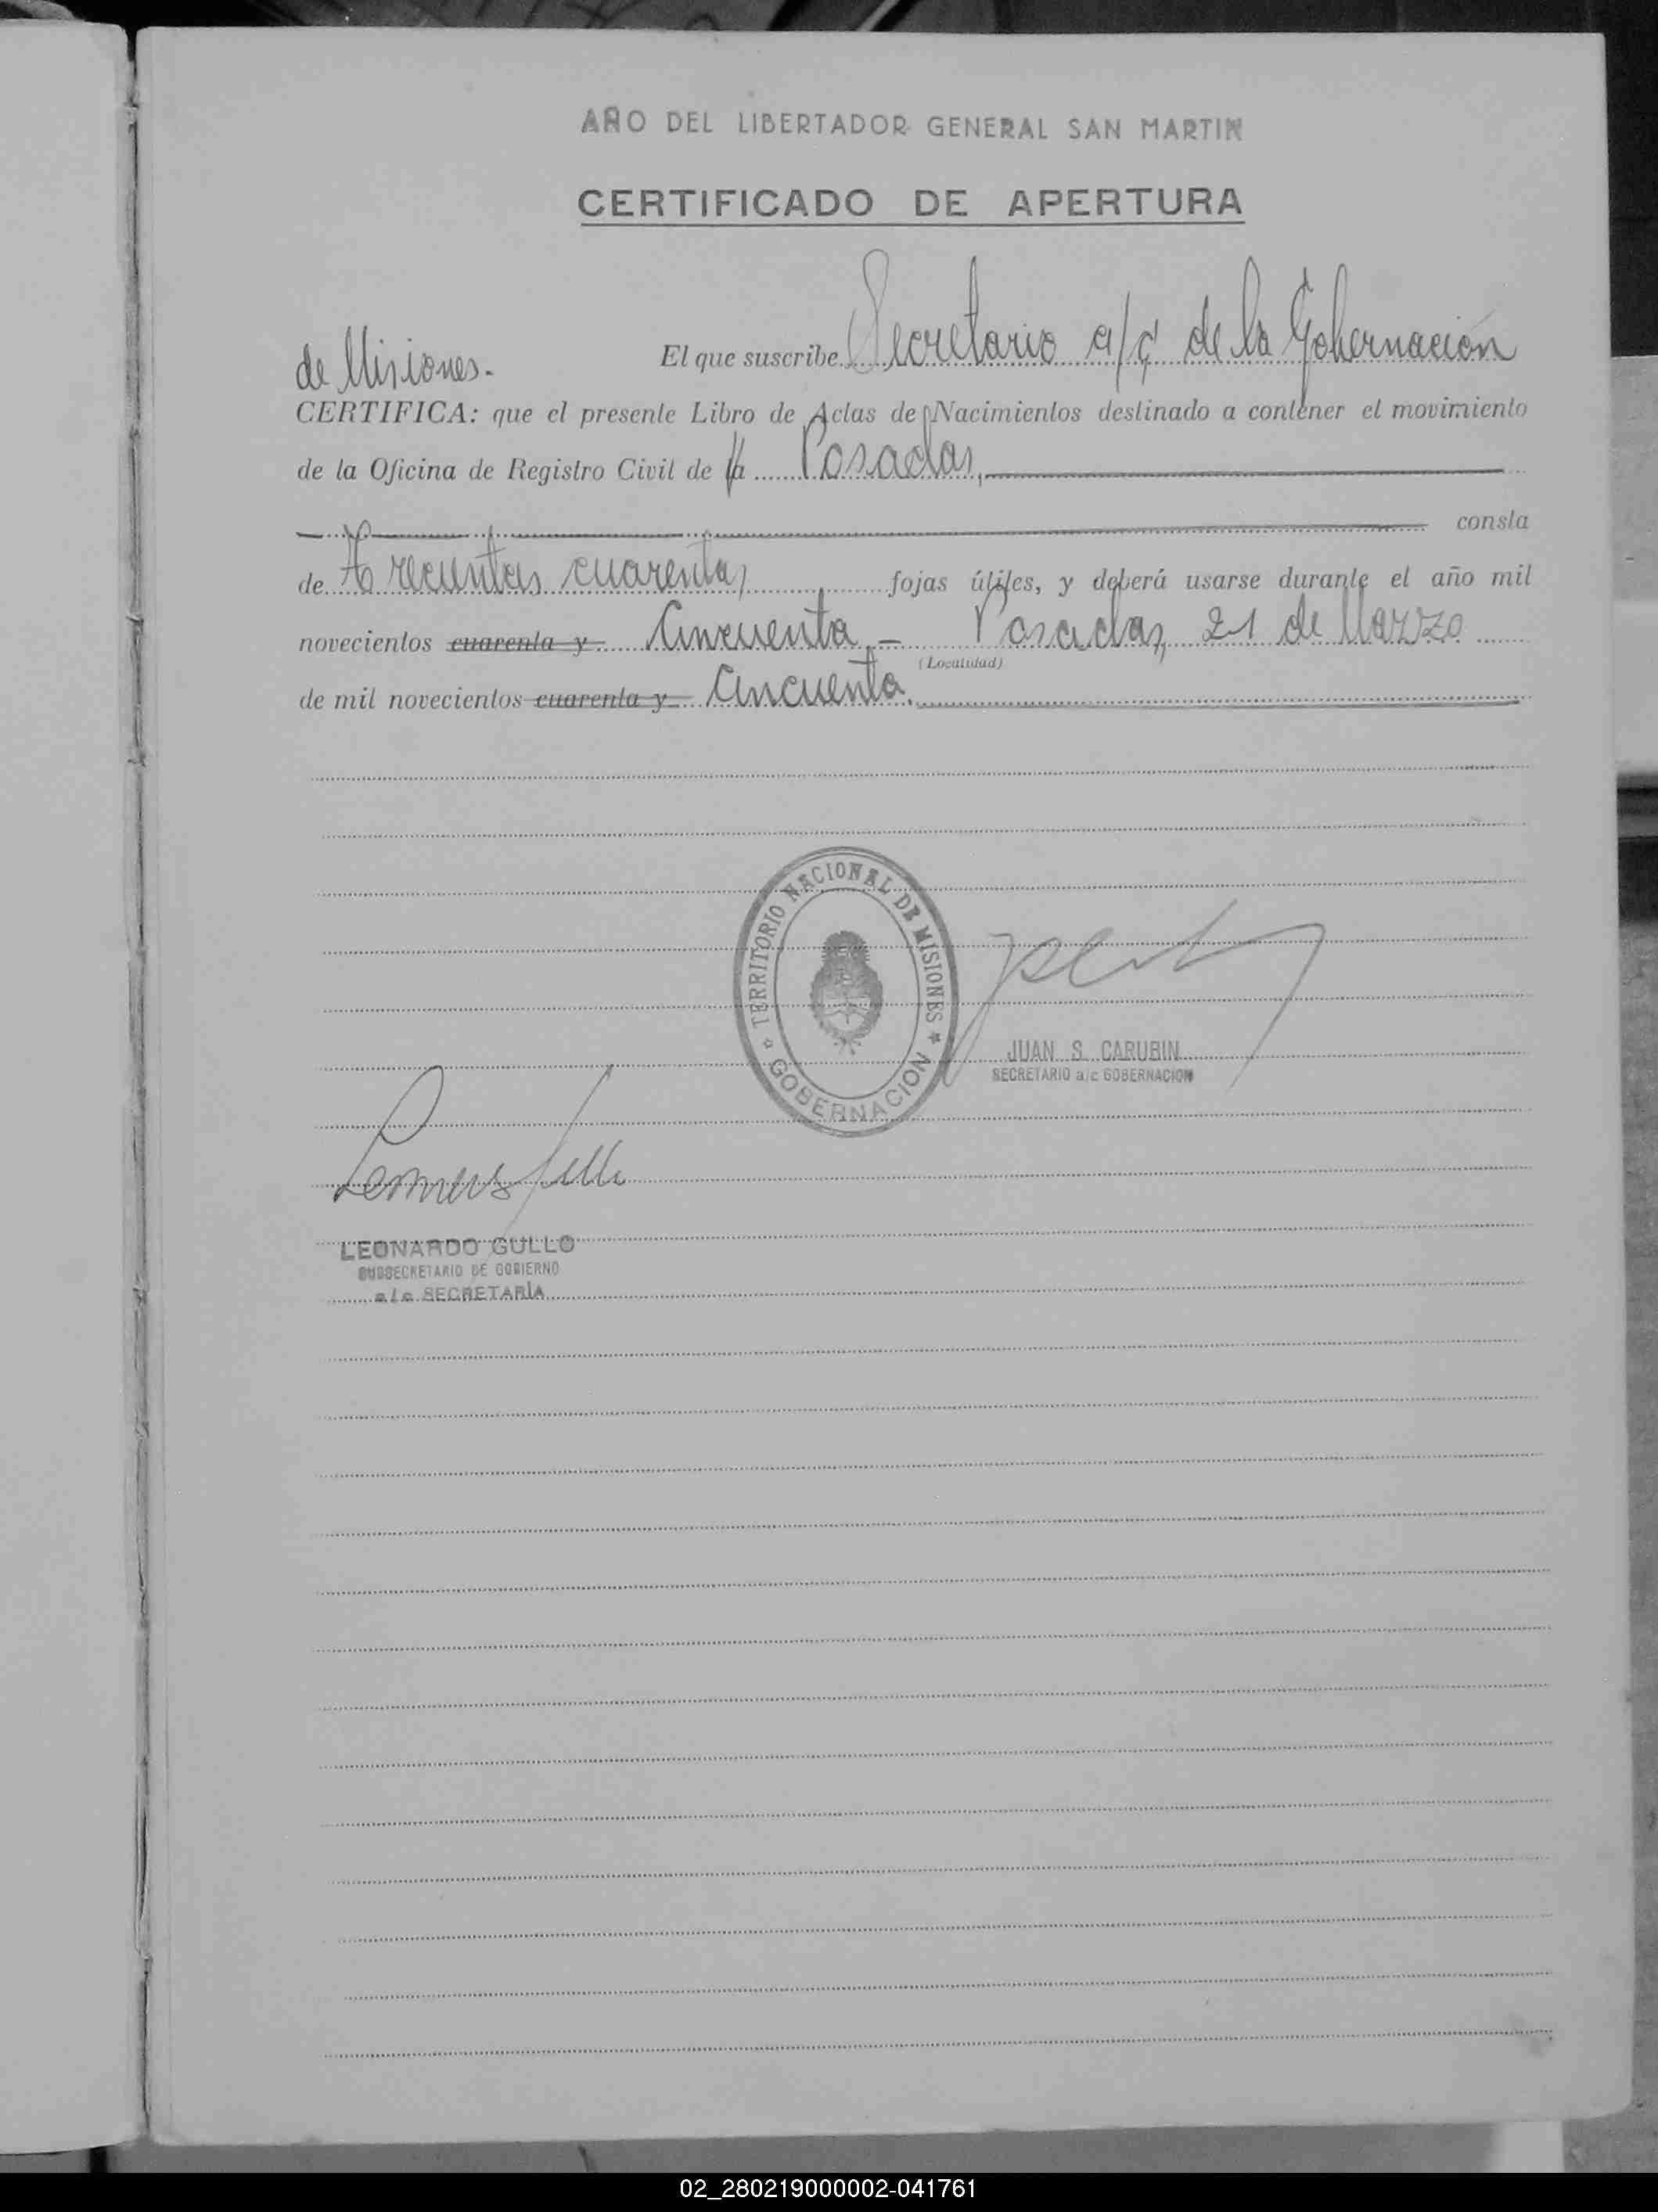 AÑO DEL LIBERTADOR GENERAL SAN MARTIN
CERTIFICADO DE APERTURA
El que suscribe Secretario a/c de la Gobernación
de Misiones.-
CERTIFICA: que el presente Libro de Actas de Nacimientos destinado a contener el movimiento
de la Oficina de Registro Civil de la Posadas,
consta
de Trecientas cuarenta, fojas útiles, y deberá usarse durante el año mil
novecientos cuarenta y Cincuenta - Posadas, 21 de Marzo
(Localidad)
de mil novecientos cuarenta y Cincuenta.
TERRITORIO NACIONAL DE MISIONES
GOBERNACION
JUAN S. CARUBIN
SECRETARIO a/c GOBERNACION
LEONARDO GULLO
SUBSECRETARIO DE GOBIERNO
a/c SECRETARÍA
02_280219000002-041761